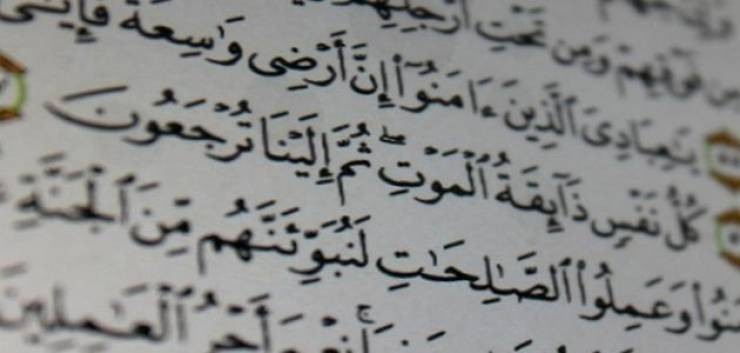 فَوْقِهِمْ وَمِن تَحْتِ أَرْجُلِهِمْ
يَٰعِبَادِىَ ٱلَّذِينَ ءَامَنُوٓا۟ إِنَّ أَرْضِى وَٰسِعَةٌ فَإِيَّٰىَ
كُلُّ نَفْسٍ ذَآئِقَةُ ٱلْمَوْتِ ۖ ثُمَّ إِلَيْنَا تُرْجَعُونَ
مَنُوا۟ وَعَمِلُوا۟ ٱلصَّٰلِحَٰتِ لَنُبَوِّئَنَّهُم مِّنَ ٱلْجَنَّةِ
نِعْمَ أَجْرُ ٱلْعَٰمِلِينَ